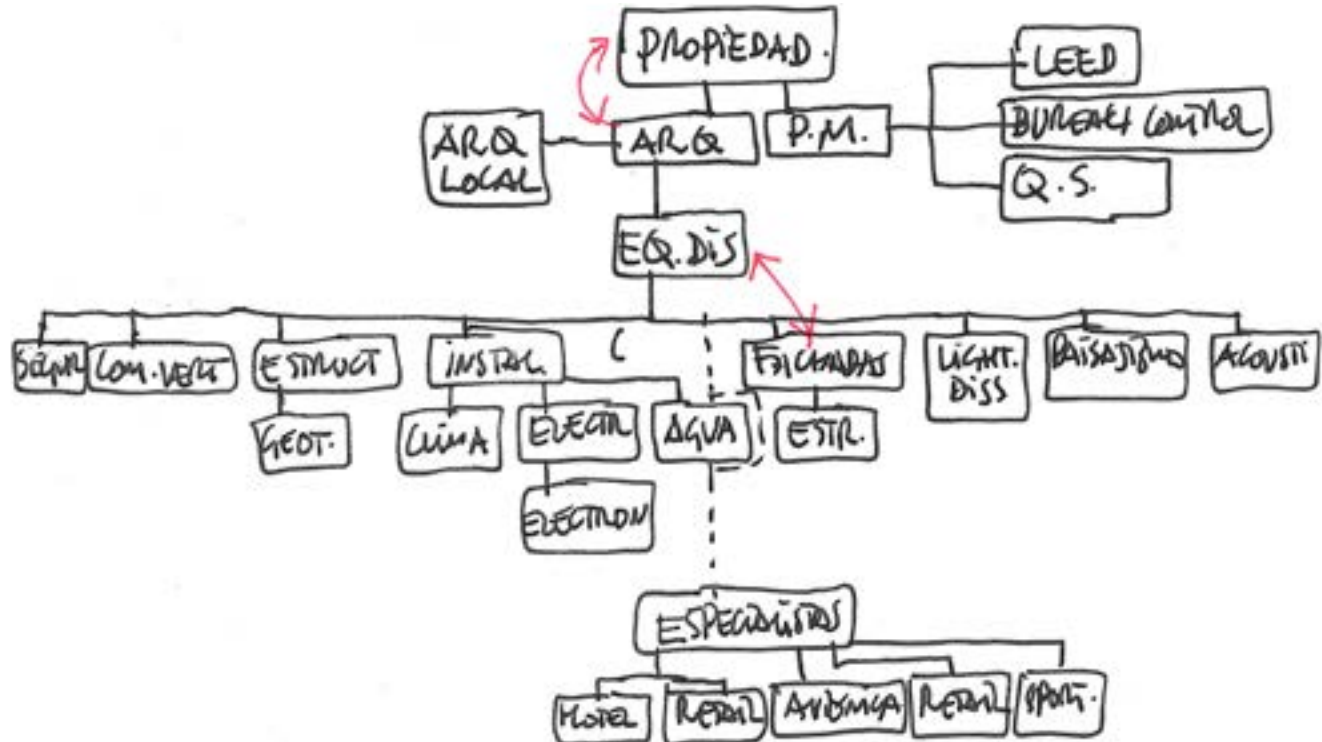 PROPIEDAD.
LEED
ARQ
LOCAL
ARQ
P.M.
BUREAU CONTROL
Q.S.
EQ.DIS
SEGUR
COM.VERT
ESTRUCT
INSTAL.
FACHADAS
LIGHT.
DISS
PAISAJISMO
ACOUSTI
GEOT.
CLIMA
ELECTR
AGUA
ESTR.
ELECTRON
ESPECIALISTAS
HOTEL
RETAIL
RETAIL
SPORT.